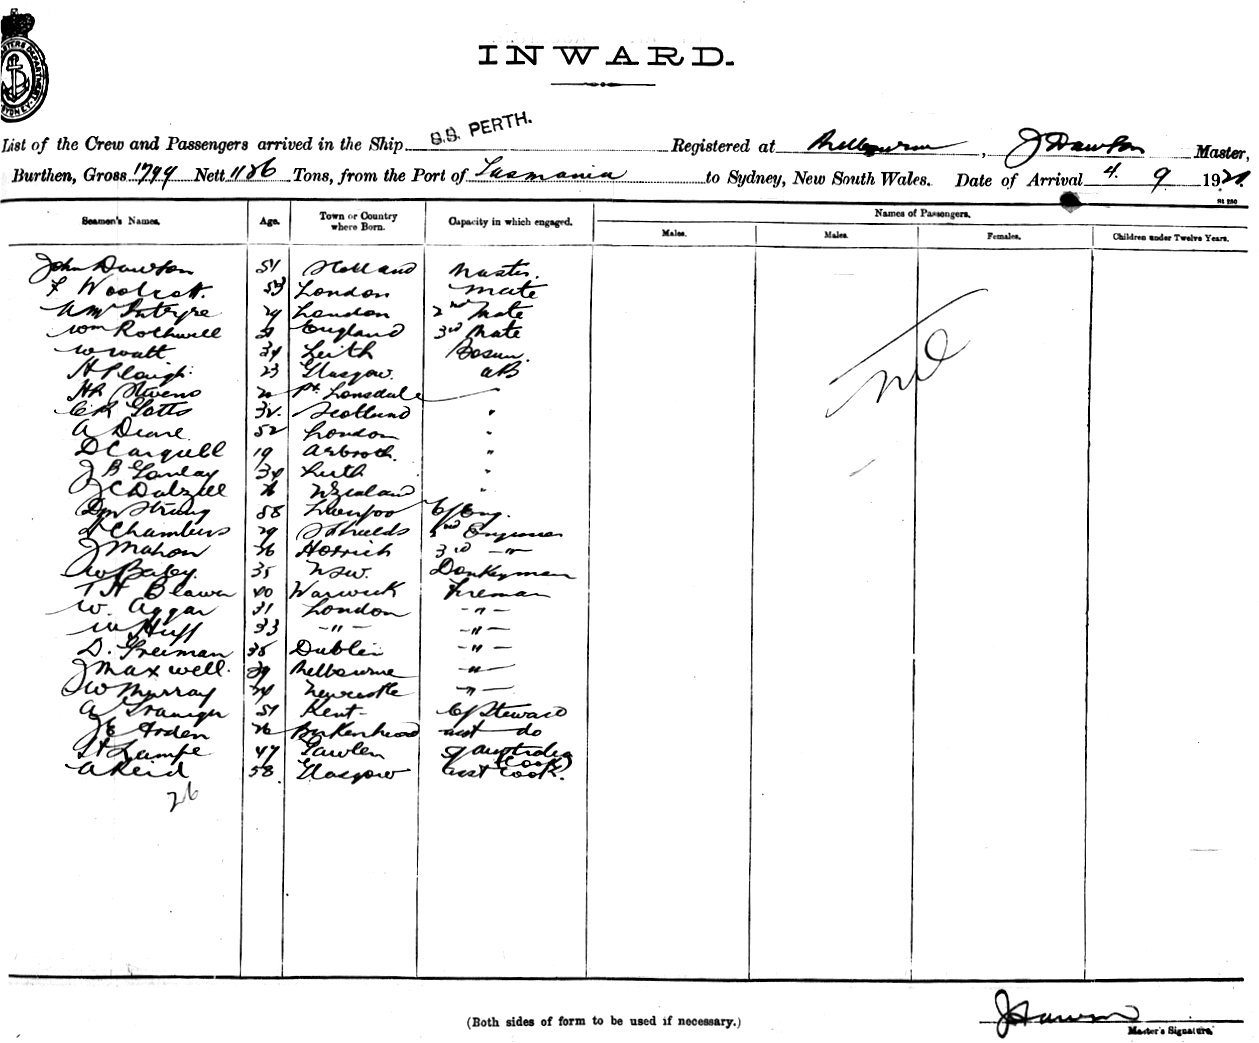 INWARD.
List of the Crew and Passengers arrived in the Ship S.S. PERTH. Registered at Melbourne, J Dawson Master,
Burthen, Gross 1799 Nett 1186 Tons, from the Port of Tasmania to Sydney, New South Wales. Date of Arrival 4 9 192
Seamen's Names. Age. Town or Country where Born. Capacity in which engaged. Names of Passengers.
Males. Males. Females. Children under Twelve Years.
John Dawson 51 Holland Master.
F Woolcott. 53 London Mate
McIntyre 29 London 2nd Mate
Wm Rothwell England 3rd Mate
W Watt 34 Leith Bosun.
H Plough 23 Glasgow. AB
HR Stevens Pt. Lonsdale
Gatts 32 Scotland "
A Deane 52 London "
D Cargill 19 Arbroth. "
J B Ganlay 34 Leith "
J C Dalzell Zealand "
Strong 58 C/Eng.
Chambers 29 S Shields 2nd Engineer
J Mahon 26 3rd -"-
W Baley. 35 NSW. Donkeyman
T H Blower 40 Warwick Fireman
W. Aggar 31 London -"-
W Huff 33 -"- -"-
D. Freiman 35 Dublin -"-
J Maxwell. 39 Melbourne -"-
W Murray 24 Newcastle -"-
A 51 Kent C/Steward
Arden 26 Birkenhead asst do
H Lampe 47 Gawler S Australia (Cook)
A Reid 58 Glasgow asst Cook.
26
Nil
(Both sides of form to be used if necessary.)
J Dawson
Master's Signature